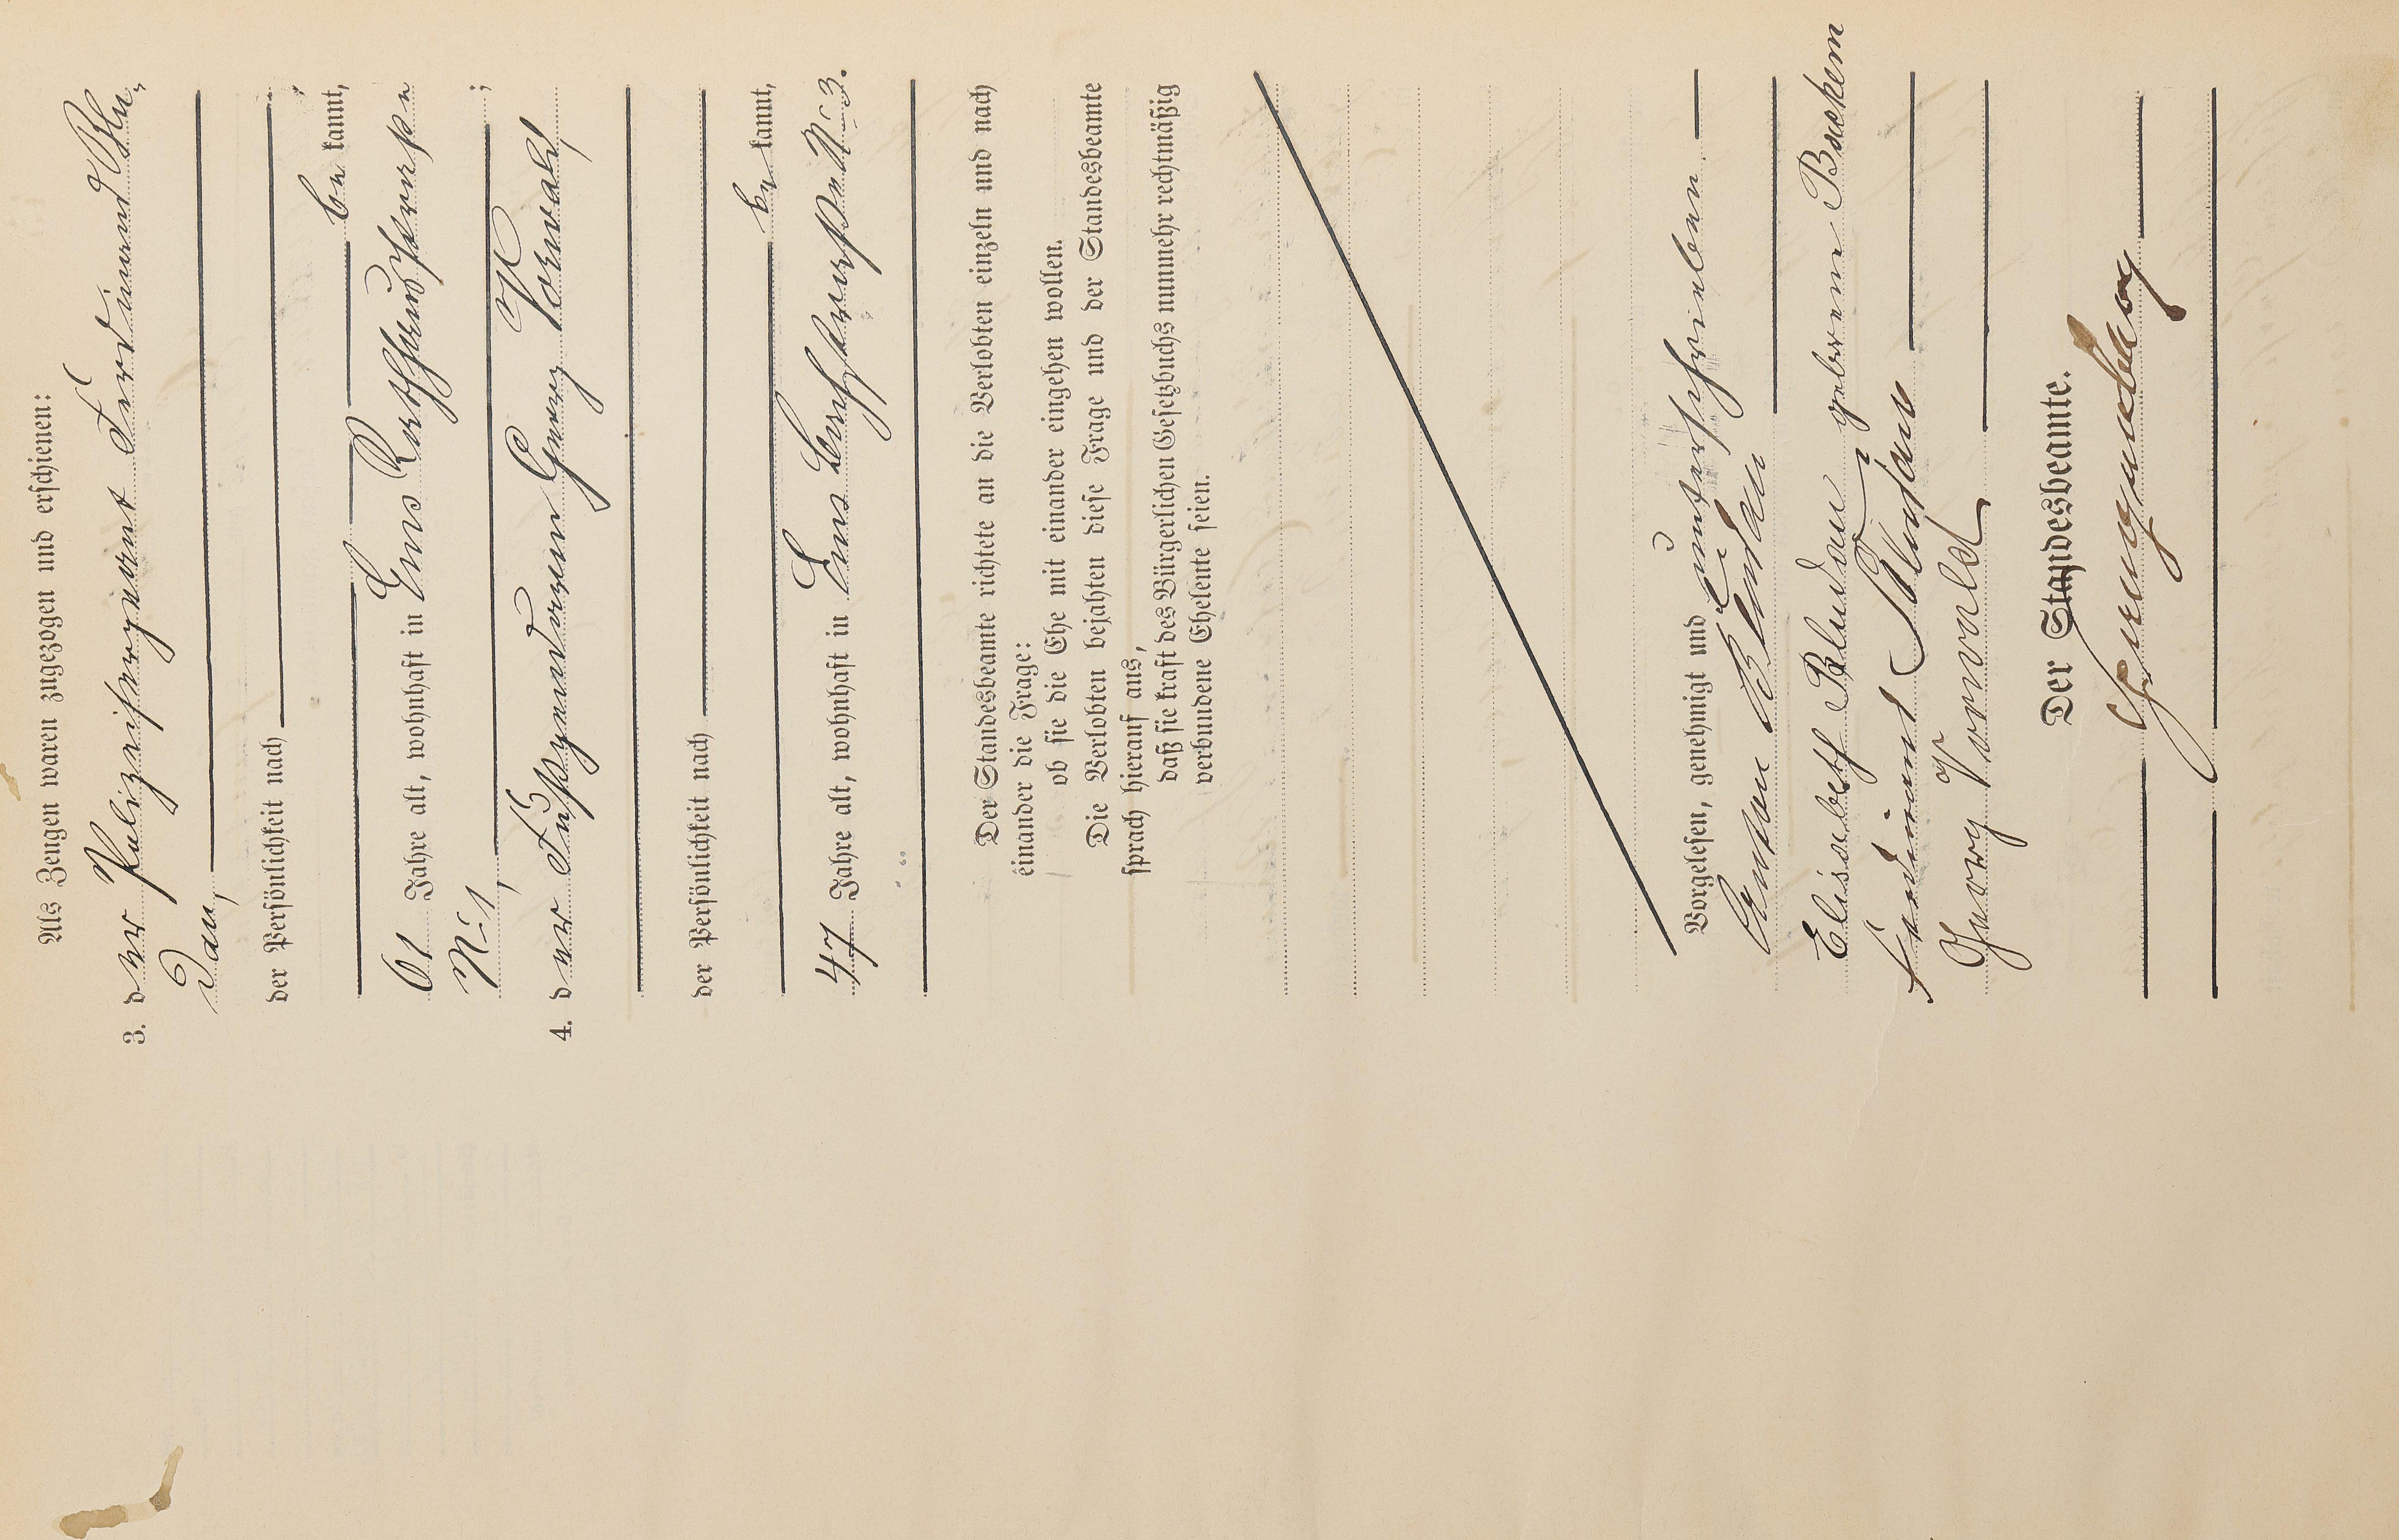 Als Zeugen waren zugezogen und erschienen:
3. der Polizeisergeant Ferdinand Blu-
dau,
der Persönlichkeit nach
be kannt,
61 Jahre alt, wohnhaft in Ems Rathhausstraße
No 1, ;
4. der Fußgendarm Georg Vorwald
der Persönlichkeit nach
be kannt,
47 Jahre alt, wohnhaft in Ems Bachstraße No 3.
Der Standesbeamte richtete an die Verlobten einzeln und nach
einander die Frage:
ob sie die Ehe mit einander eingehen wollen.
Die Verlobten bejahten diese Frage und der Standesbeamte
sprach hierauf aus,
daß sie kraft des Bürgerlichen Gesetzbuchs nunmehr rechtmäßig
verbundene Eheleute seien.
Vorgelesen, genehmigt und unterschrieben
Bludau
Elisabeth Bludau geborene Backem
Ferdinand Bludau
Georg Vorwald
Der Standesbeamte.